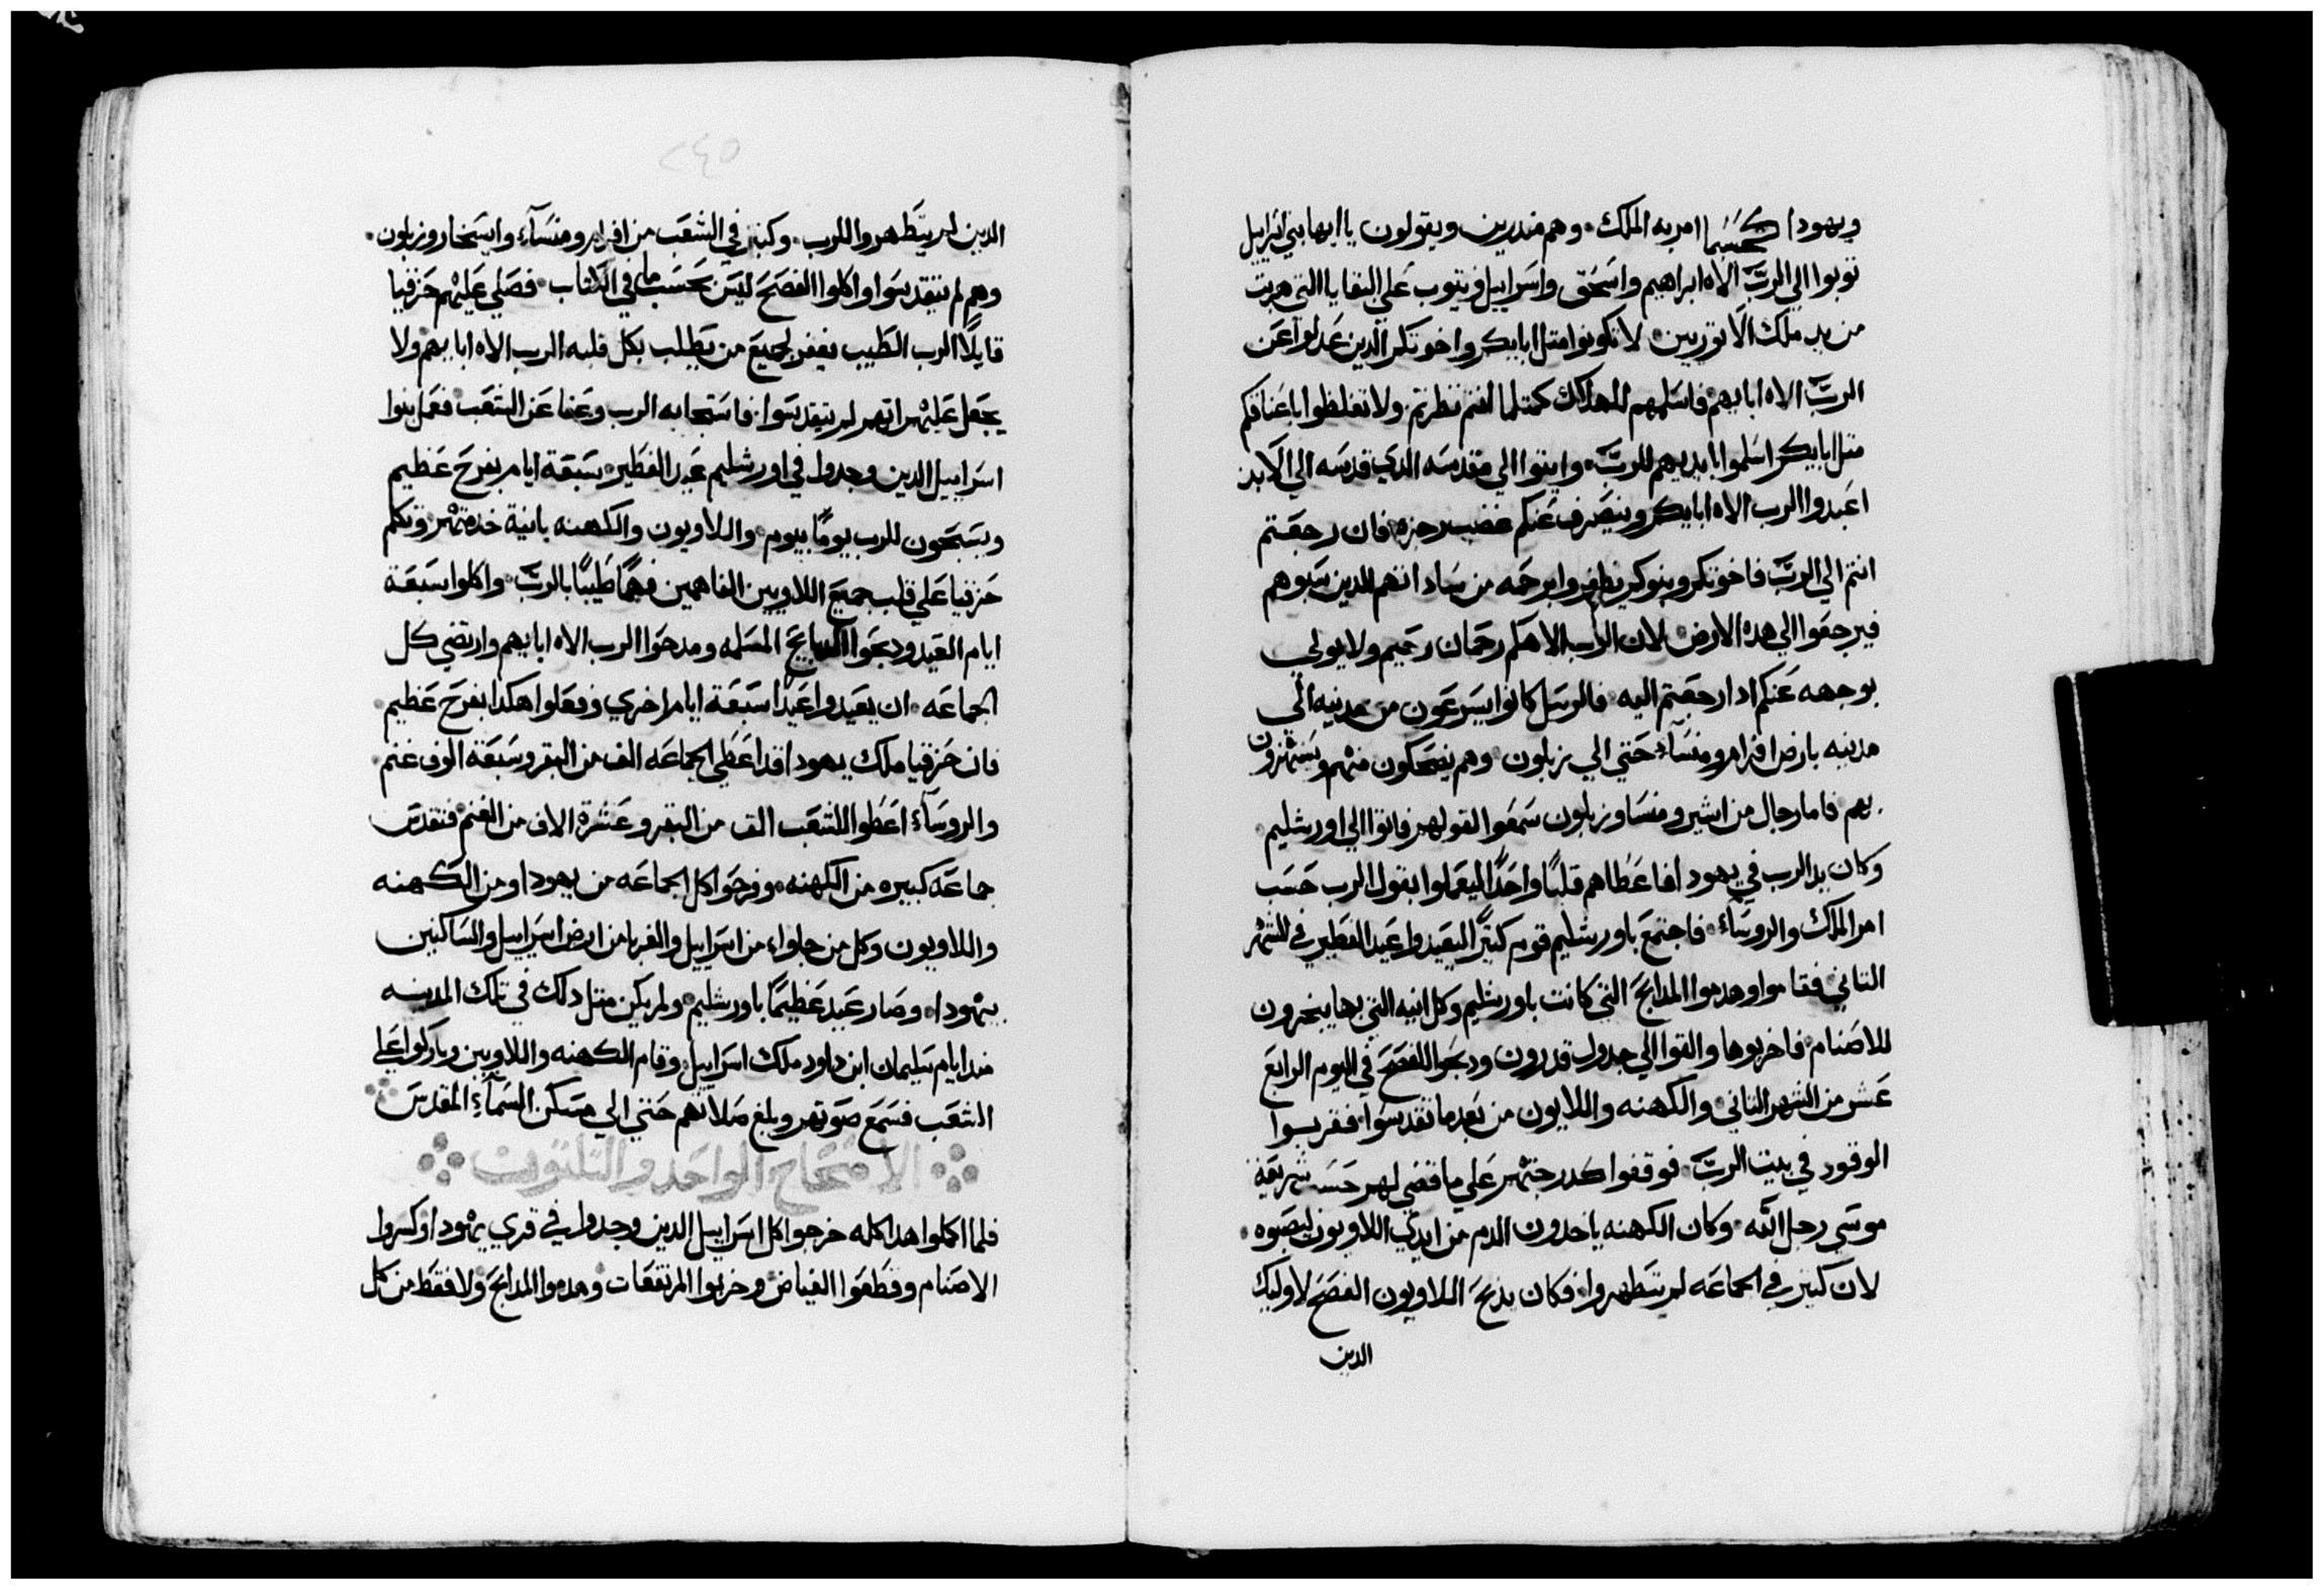 ويهودا كحسبما امر به الملك وهم مندرين ويقولون يا ايها بني اسراييل
توبوا الي الرب الاه ابراهيم واسحق واسراييل ويتوب علي البقايا التي هربت
من يد ملك الاتوريين لا تكونوا متل ابايكم واخوتكم الدين عدلوا عن
الرب الاه ابايهم فاسلمهم للهلاك كمتلما انتم نظرتم ولا تغلظوا باعناقكم
متل ابايكم اسلموا بايديهم للرب وايتوا الي مقدسه الدي قدسه الي الابد
اعبدوا الرب الاه ابايكم وينصرف عنكم غضب رجزه فان رجعتم
انتم الي الرب فاخوتكم وبنوكم يظفروا برحمه من ساداتهم الدين سبوهم
فيرجعوا الي هده الارض لان الرب الاهكم رحمان رحيم ولا يولي
بوجهه عنكم ادا رجعتم اليه فالرسل كانوا يسرعون من مدينه الي
مدينه بارض افرام ومنسآء حتي الي زبلون وهم يضحكون منهم ويستهزون
بهم فاما رجال من اشير ومنسا وزبلون سمعوا لقولهم فاتوا الي اورشليم
وكان يد الرب في يهودا فاعطاهم قلبًا واحدًا ليعملوا بقول الرب حسب
امر الملك والروسآء فاجتمع باورشليم قوم كتيرًا ليعيدوا عيد الفطير في الشهر
التاني فقاموا وهدموا المدابح التي كانت باورشليم وكل انيه التي بها يبخرون
للاصنام فاخربوها والقوا الي جدول قدرون ودبحوا الفصح في اليوم الرابع
عشر من الشهر التاني والكهنه واللايون من بعد ما تقدسوا فقربوا
الوقود في بيت الرب فوقفوا كدرجتهم علي ما قضي لهم حسب شريعة
موسي رجل الله وكان الكهنه ياخدون الدم من ايدي اللاويون ليصبوه
لان كتير في الجماعه لم يتطهروا فكان يدبح اللاويون الفصح لاوليك
الدين
٢٤٥
الدين لم يتطهروا للرب وكتير في الشعب من افرام ومنسآء وايسخار وزبلون
وهم لم يتقدسوا واكلوا الفصح ليس بحسب ما في الكتاب فصلي عليهم حزقيا
قايلًا الرب الطيب يغفر لجميع من يطلب بكل قلبه الرب الاه ابايهم ولا
يجعل عليهم انهم لم يتقدسوا فاستجابه الرب وعفا عن الشعب فعمل بنوا
اسراييل الدين وجدوا في اورشليم عيد الفطير سبعة ايام بفرح عظيم
ويسبحون للرب يومًا بيوم واللاويون والكهنه بانية خدمتهم وتكلم
حزقيا علي قلب جميع اللاويين الفاهمين فهمًا طيبًا بالرب واكلوا سبعة
ايام العيد ودبحوا الدبايح المسلمه ومدحوا الرب الاه ابايهم وارتضي كل
الجماعه ان يعيدوا عيدًا سبعة ايام اخري وفعلوا هكدا بفرح عظيم
فان حزقيا ملك يهودا قد اعطي الجماعه الف من البقر وسبعة الوف غنم
والروسآء اعطوا للشعب الف من البقر وعشرة الاف من الغنم فتقدس
جماعه كبيره من الكهنه وفرحوا كل الجماعه من يهودا ومن الكهنه
واللاويون وكل من جاوا من اسراييل والغربا من ارض اسراييل والساكنين
بيهودا وصار عيد عظيمًا باورشليم ولم يكن متل دلك في تلك المدينه
مند ايام سليمان ابن داود ملك اسراييل وقام الكهنه واللاويين وباركوا علي
الشعب فسمع صوتهم وبلغ صلاتهم حتي الي مسكن السمآء المقدس
الاصحاح الواحد والتلتون
فلما اكملوا هدا كله خرجوا كل اسراييل الدين وجدوا في قري يهودا وكسروا
الاصنام وقطعوا الغياض وخربوا المرتفعات وهدموا المدابح ولا فقط من كل